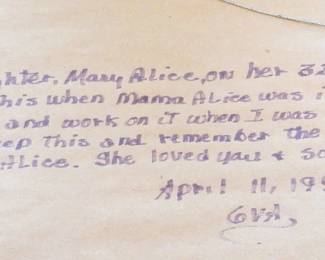 hter, Mary Alice, on her 32
his when Mama Alice was i
and work on it when I was
ep this and remember the
Alice. She loved you & so
April 11, 199
GVA,